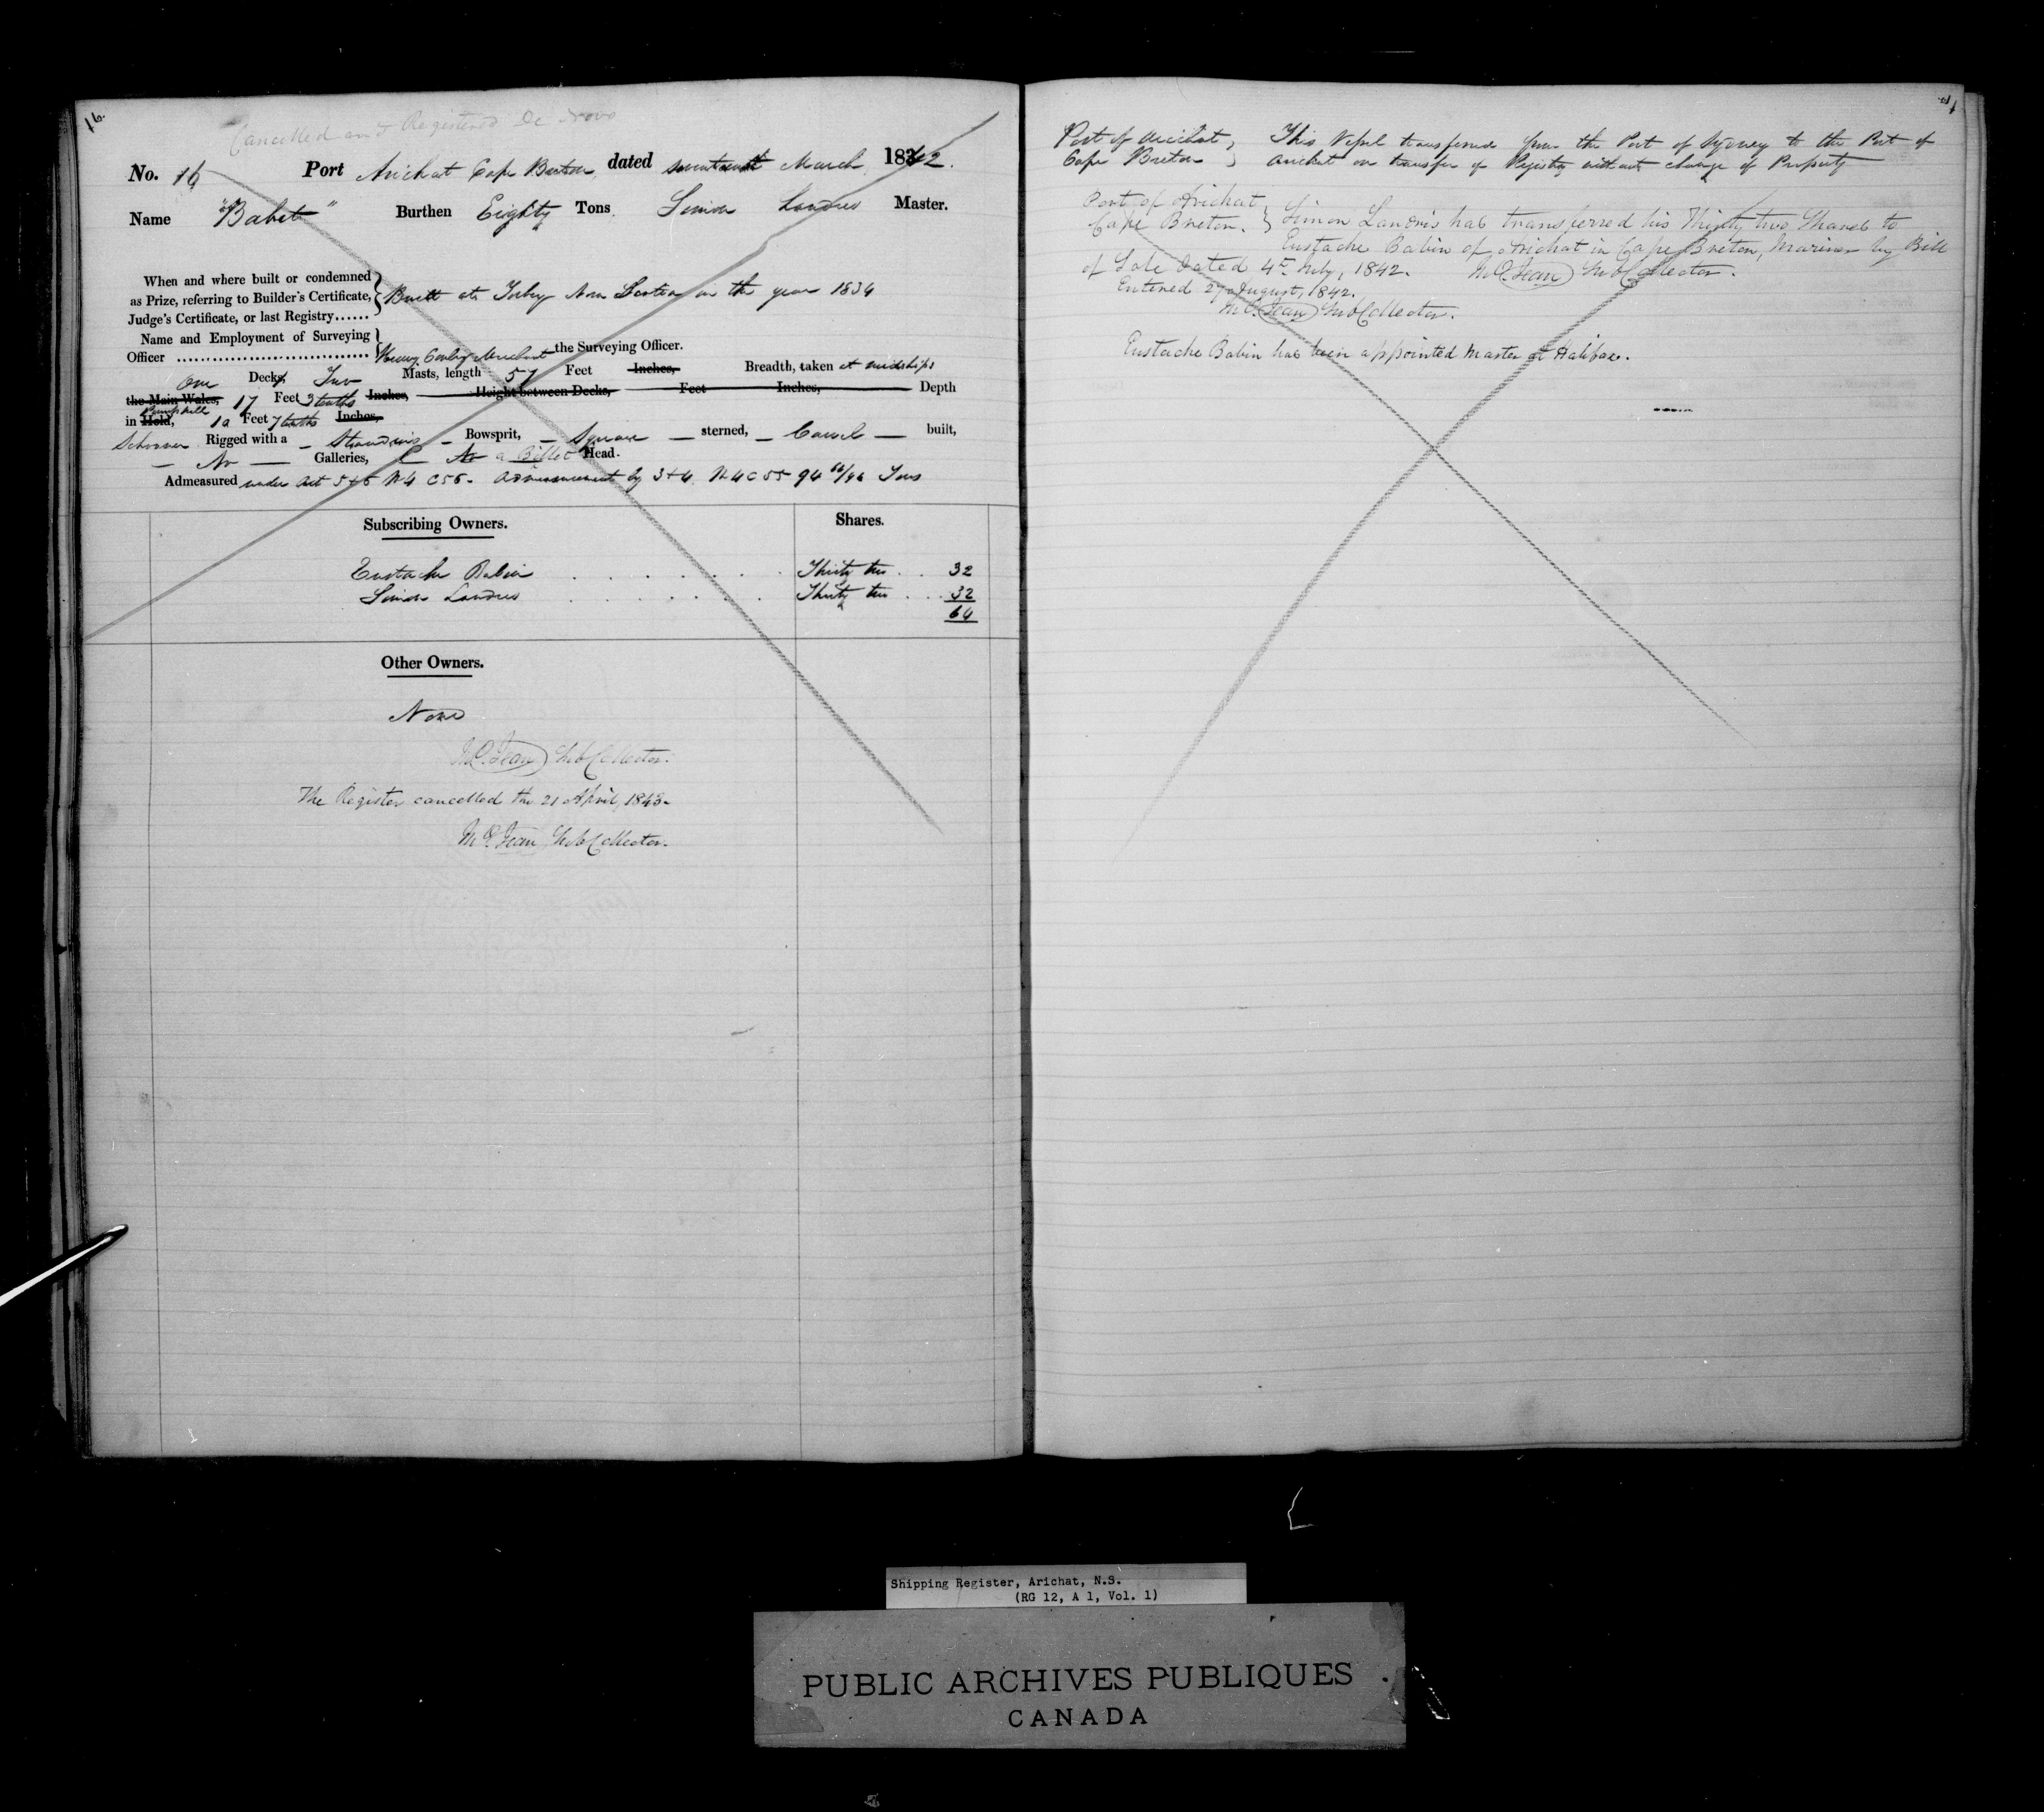 16.
Cancelled and Registered De Novo
No. 16 Port Arichat Cape Breton dated seventeenth March 1842.
Name "Babet" Burthen Eighty Tons. Simon Landris Master.
When and where built or condemned
as Prize, referring to Builder's Certificate,
Judge's Certificate, or last Registry......
Built at Torbay Nova Scotia in the year 1834
Name and Employment of Surveying
Officer ................................ Henry Merchant the Surveying Officer.
One Deck, Two Masts, length 57 Feet Inches, Breadth, taken at midships
the Main Wales, 17 Feet 3 tenths Inches, Height between Decks, Feet Inches, Depth
in Hold, 10 Feet 7 tenths Inches,
Schooner Rigged with a Standing Bowsprit, Square sterned, Carvel built,
No Galleries, No a Billet Head.
Admeasured under Act 5+6 W4 C56. Admeasurement by 3+4 W4 C55 94 Tons
Subscribing Owners. Shares.
Eustache Babin Thirty two 32
Simon Landris Thirty two 32
64
Other Owners.
None
Sub Collector.
The Register cancelled the 21 April, 1843.
Sub Collector.
Port of Arichat, Cape Breton
This Vessel transferred from the Port of Sydney to the Port of
Arichat on transfer of Registry without change of Property
Port of Arichat,
Cape Breton.
Simon Landris has transferred his Thirty two Shares to
Eustache Babin of Arichat in Cape Breton, Mariner by Bill
of Sale dated 4th July, 1842. Sub Collector.
Entered 27 August, 1842.
Sub Collector.
Eustache Babin has been appointed Master at Halifax.
Shipping Register, Arichat, N.S.
(RG 12, A 1, Vol. 1)
PUBLIC ARCHIVES PUBLIQUES
CANADA